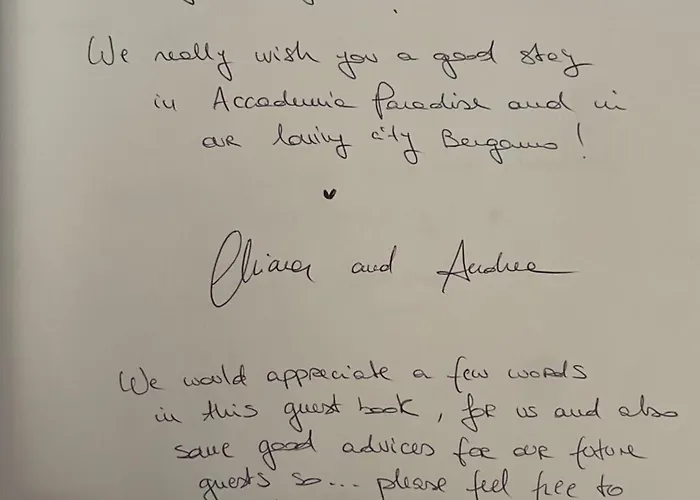 We really wish you a good stay
in Accademia Paradise and in
our loving city Bergamo!
Chiara and Andrea
We would appreciate a few words
in this guest book, for us and also
some good advices for our future
guests so... please feel free to